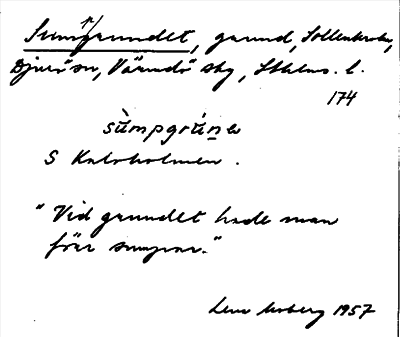 Sumpgrundet, grund, Sollenkroka,
Djurö sn, Värmdö skg, Sthlms. l.
174
sùmpgrún̲e
S Kalvholmen.
"Vid grundet hade man
förr sumpar."
Lena Moberg 1957